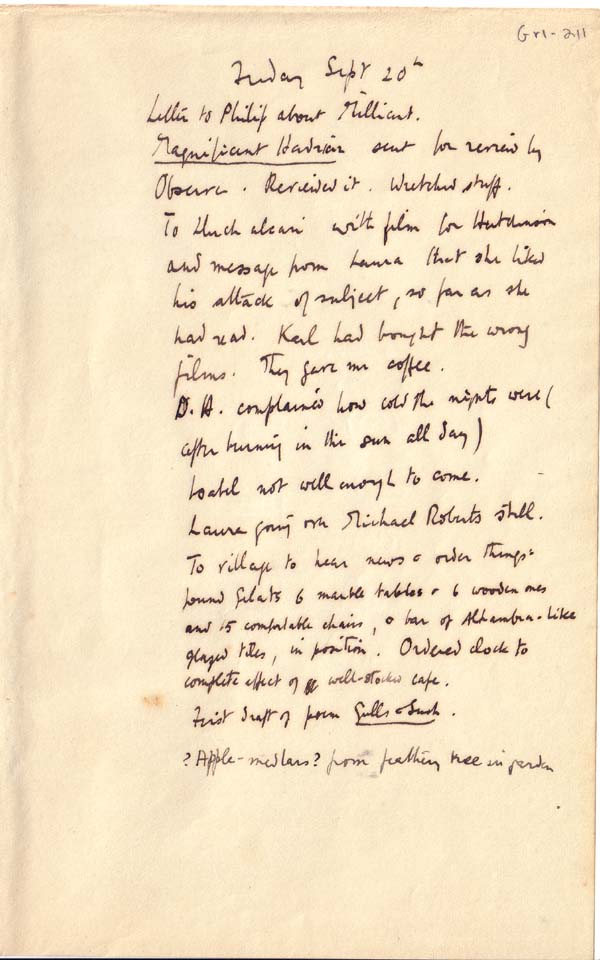 Gr1-211
Friday Sept 20th
Letter to Philip about Millicent.
Magnificent Hadrian sent for review by
Observer. Reviewed it. Wretched stuff.
To Lluch alcari with film for Hutchinson
and message from Laura that she liked
his attack of subject, so far as she
had read. Karl had bought the wrong
films. They gave me coffee.
D. H. complained how cold the nights were (
after burning in the sun all day)
Isabel not well enough to come.
Laura going over Michael Roberts still.
To village to hear news & order things:
found Gelat's 6 marble tables & 6 wooden ones
and 15 comfortable chairs, & bar of Alhambra-like
glazed tiles, in position. Ordered clock to
complete effect of well-stocked cafe.
First draft of poem Gulls & Such.
? Apple-medlars? from feathery tree in garden